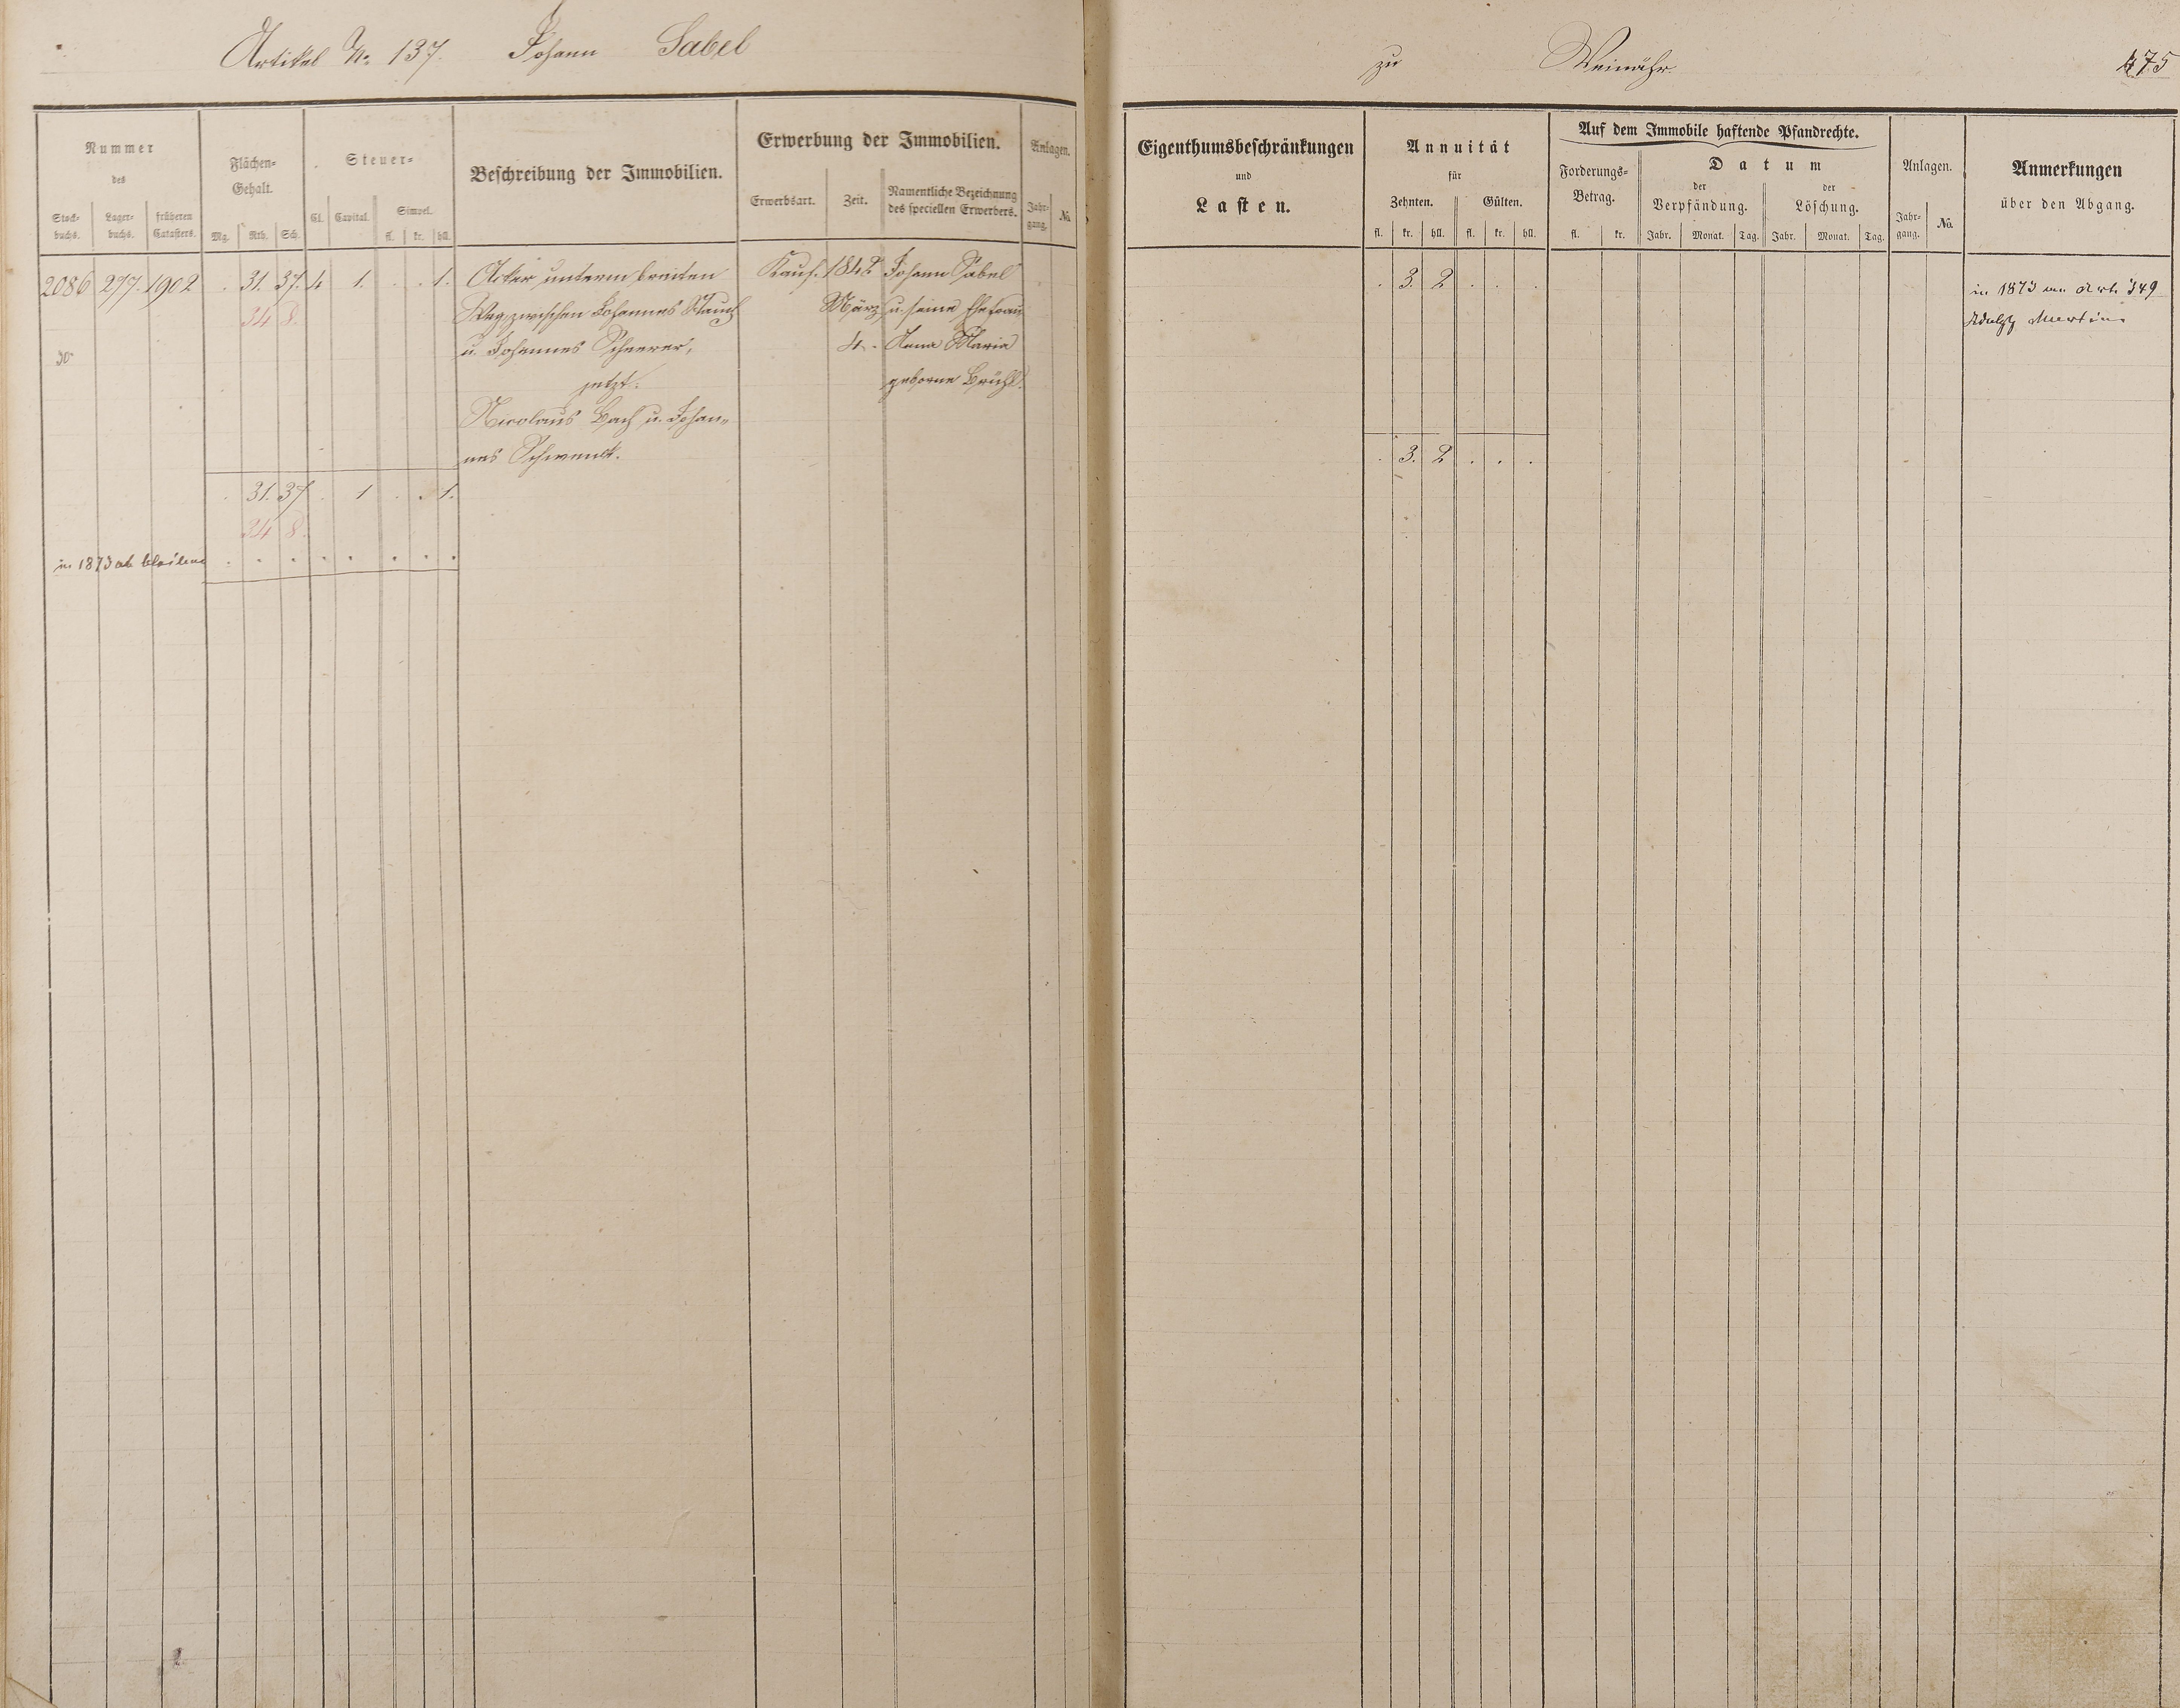 Artikel No 137. Johann Sabel
Nummer
des
Stock-
buchs.
Lager-
buchs.
früheren
Catasters.
Flächen-
Gehalt.
Mg. Rth. Sch.
Steuer-
Cl. Capital. Simpel.
fl. kr. hll.
Beschreibung der Immobilien.
Erwerbung der Immobilien.
Erwerbsart. Zeit. Namentliche Bezeichnung
des speciellen Erwerbers.
Anlagen.
Jahr-
gang.
No.
2086 277. 1902 . 31. 37. 4 1. . . 1. Acker unterm breiten Kauf. 1842 Johann Sabel
34 8. Weg zwischen Johannes März u. seine Ehefrau
30 u. Johannes Scheerer, 4. Anna Maria
jetzt: geborne Brühl.
Nicolaus Bach u. Johan-
nes Schwenk.
. 31. 37 . 1 . . 1.
34 8.
in 1873 ab bleiben . . . . . . . .
zu Weinähr. 475
Eigenthumsbeschränkungen
und
Lasten.
Annuität
für
Zehnten. Gülten.
fl. kr. hll. fl. kr. hll.
Auf dem Immobile haftende Pfandrechte.
Forderungs-
Betrag.
fl. kr.
Datum
der
Verpfändung.
der
Löschung.
Jahr. Monat. Tag. Jahr. Monat. Tag.
Anlagen.
Jahr-
gang.
No.
Anmerkungen
über den Abgang.
. 3. 2 . . . in 1873 an Art. 349
Adolph Martin
. 3. 2 . . .